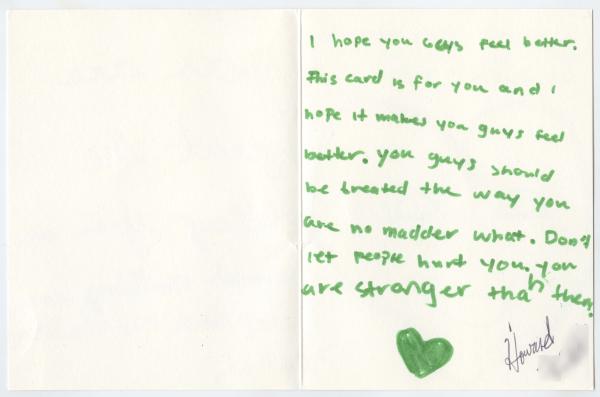 I hope you Guys feel better.
This card is for you and I
hope it makes you guys feel
better. You guys should
be treated the way you
are no madder what. Don't
let people hurt you. you
are stranger than them.
Howard